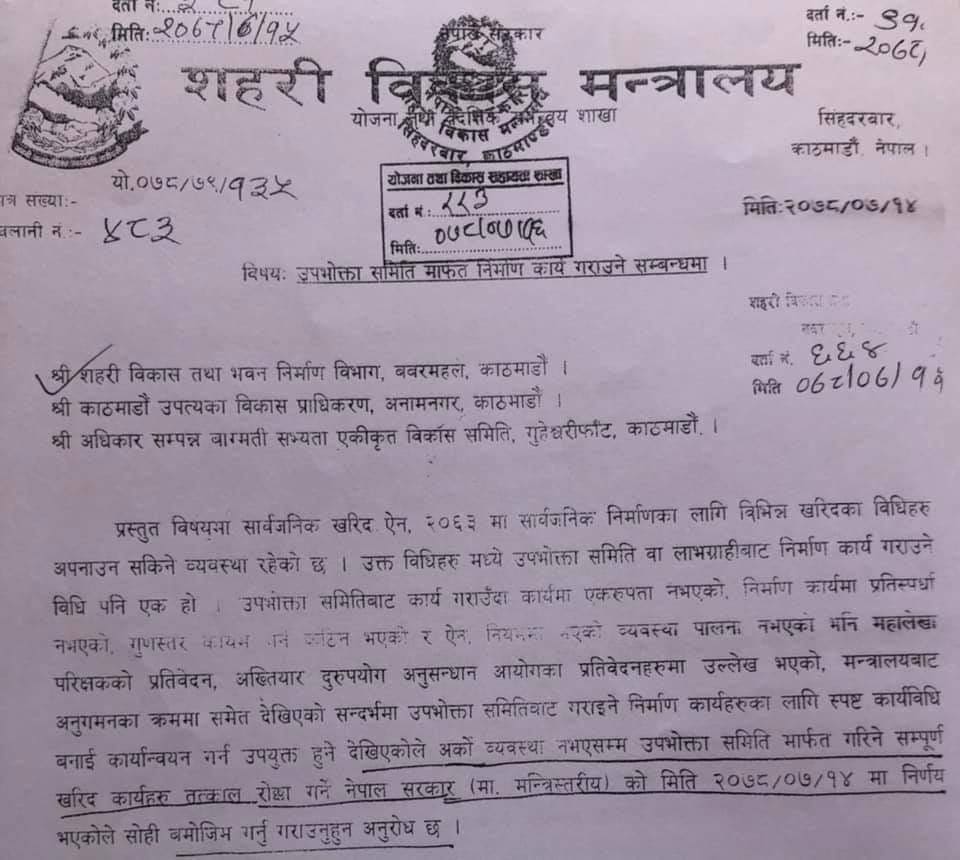 दर्ता नं.:
मितिः २०७८/७/१५
दर्ता नं.:-
मितिः-
नेपाल सरकार
शहरी विकास मन्त्रालय
योजना तथा शाखा
विकास
सिंहदरबार, काठमाडौं
सिंहदरबार,
काठमाडौं, नेपाल ।
यो.०७८/७९/१३५
पत्र संख्याः-
चलानी नं.:- ४८३
योजना तथा विकास सहायता शाखा
दर्ता नं.:
मितिः
मितिः २०७८/०७/१४
विषयः उपभोक्ता समिति मार्फत निर्माण कार्य गराउने सम्बन्धमा ।
शहरी
दर्ता नं. ६६४
मिति
श्री शहरी विकास तथा भवन निर्माण विभाग, बबरमहल, काठमाडौं ।
श्री काठमाडौं उपत्यका विकास प्राधिकरण, अनामनगर, काठमाडौं ।
श्री अधिकार सम्पन्न बाग्मती सभ्यता एकीकृत विकास समिति, गुहेश्वरीफाँट, काठमाडौं, ।
प्रस्तुत विषयमा सार्वजनिक खरिद ऐन, २०६३ मा सार्वजनिक निर्माणका लागि विभिन्न खरिदका विधिहरु
अपनाउन सकिने व्यवस्था रहेको छ । उक्त विधिहरु मध्ये उपभोक्ता समिति वा लाभग्राहीबाट निर्माण कार्य गराउने
विधि पनि एक हो । उपभोक्ता समितिबाट कार्य गराउँदा कार्यमा एकरुपता नभएको, निर्माण कार्यमा प्रतिस्पर्धा
नभएको, गुणस्तर कायम गर्न कठिन भएको र ऐन, नियममा भएको व्यवस्था पालना नभएको भनि महालेखा
परिक्षकको प्रतिवेदन, अख्तियार दुरुपयोग अनुसन्धान आयोगका प्रतिवेदनहरुमा उल्लेख भएको, मन्त्रालयबाट
अनुगमनका क्रममा समेत देखिएको सन्दर्भमा उपभोक्ता समितिबाट गराइने निर्माण कार्यहरुका लागि स्पष्ट कार्यविधि
बनाई कार्यान्वयन गर्न उपयुक्त हुने देखिएकोले अर्को व्यवस्था नभएसम्म उपभोक्ता समिति मार्फत गरिने सम्पूर्ण
खरिद कार्यहरु तत्काल रोक्का गर्ने नेपाल सरकार (मा. मन्त्रिस्तरीय) को मिति २०७८/०७/१४ मा निर्णय
भएकोले सोही बमोजिम गर्नु गराउनुहुन अनुरोध छ ।